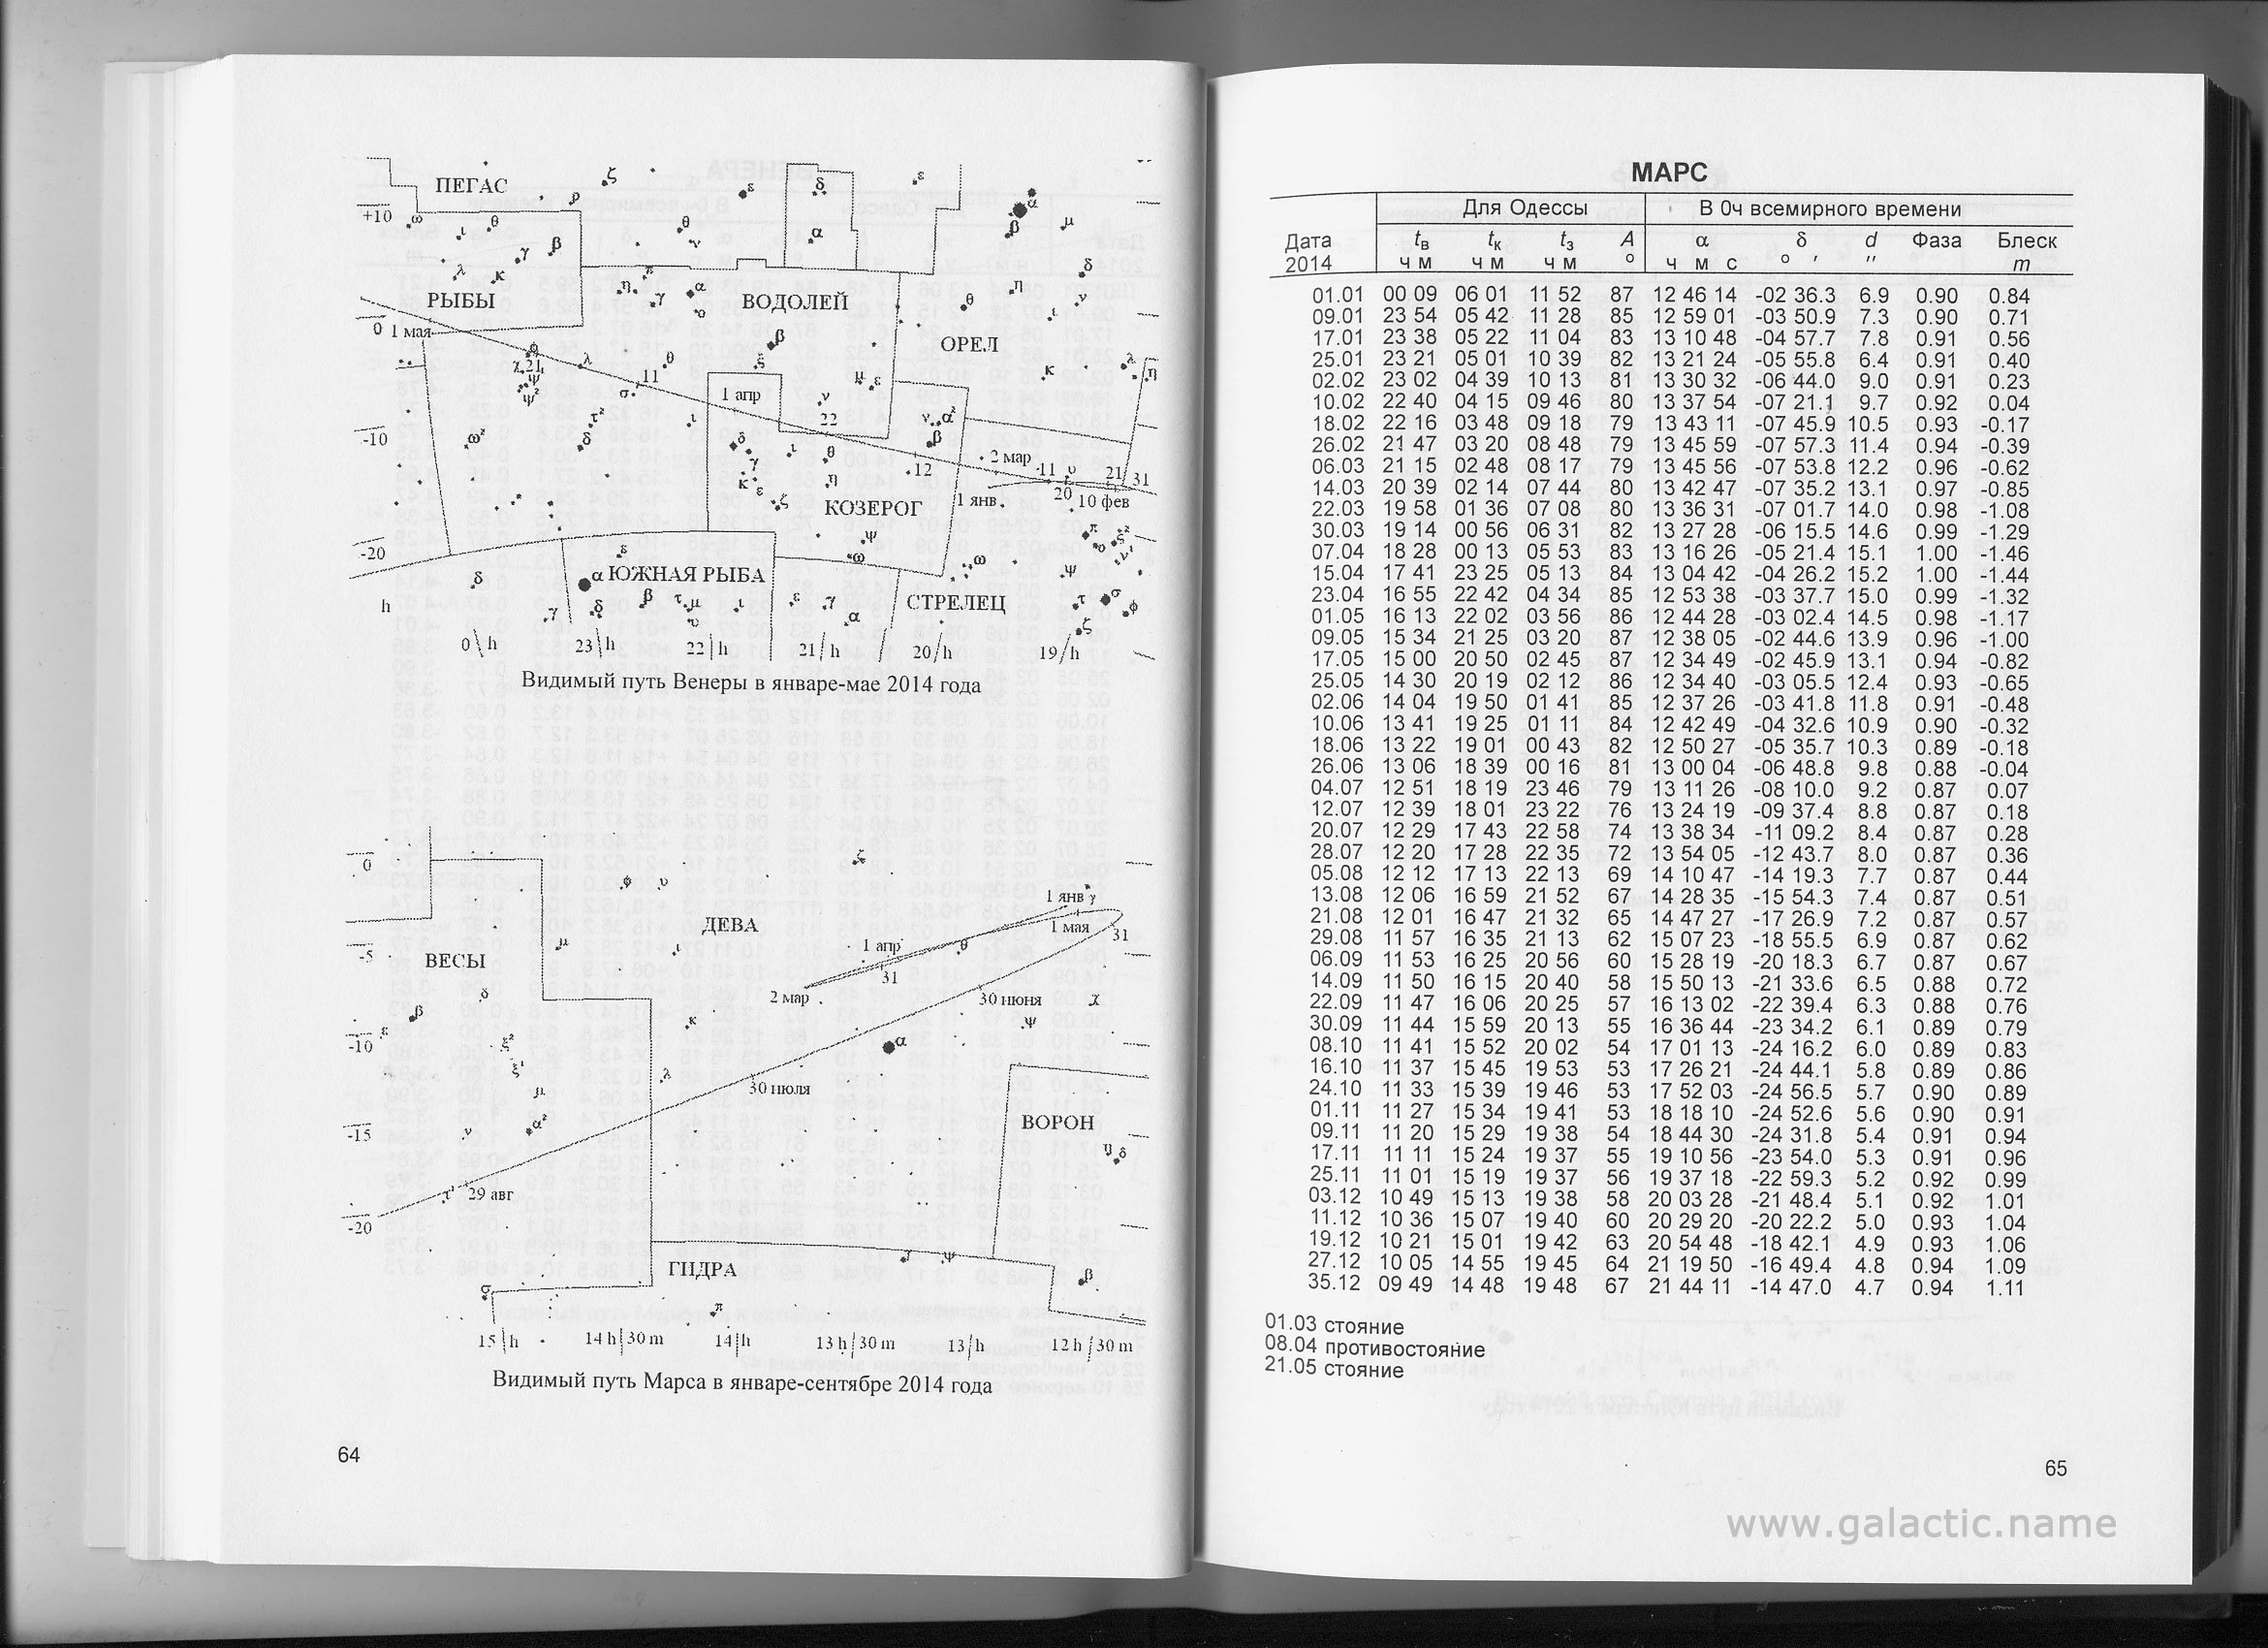 ПЕГАС ζ ε δ ε
+10 ω ι θ ρ θ ν α α β μ
γ β
λ κ π δ
РЫБЫ η γ α ο ВОДОЛЕЙ θ η ν ι
0 1 мая β ОРЕЛ
φ χ 21 λ θ ξ μ ε κ λ η
ψ ψ² σ 11 1 апр ν 22
τ² ι ν α²
-10 ω² δ δ β
γ ι θ 12 2 мар 11 υ 21 31
κ ε η 1 янв 20 10 фев
ζ КОЗЕРОГ
ψ π ο ξ² ν¹
-20 ε ω ω ψ
δ α ЮЖНАЯ РЫБА
h γ δ β τ μ υ ι ε γ α СТРЕЛЕЦ τ σ φ
ζ
0 h 23 h 22 h 21 h 20 h 19 h
Видимый путь Венеры в январе-мае 2014 года
0 φ υ ζ
1 янв γ
ДЕВА 1 мая
μ ι 1 апр θ 31
-5 ВЕСЫ 31
δ 2 мар 30 июня χ
β κ ψ
ε ξ² α
-10
ξ¹ λ
μ 30 июля
ν α² ВОРОН
-15
η δ
τ¹ 29 авг
-20
γ ψ
ГИДРА β
σ
π
15 h 14 h 30 m 14 h 13 h 30 m 13 h 12 h 30 m
Видимый путь Марса в январе-сентябре 2014 года
64
МАРС
Для Одессы В 0ч всемирного времени
Дата tв tк tз A α δ d Фаза Блеск
2014 ч м ч м ч м ° ч м с ° ′ ″ m
01.01 00 09 06 01 11 52 87 12 46 14 -02 36.3 6.9 0.90 0.84
09.01 23 54 05 42 11 28 85 12 59 01 -03 50.9 7.3 0.90 0.71
17.01 23 38 05 22 11 04 83 13 10 48 -04 57.7 7.8 0.91 0.56
25.01 23 21 05 01 10 39 82 13 21 24 -05 55.8 6.4 0.91 0.40
02.02 23 02 04 39 10 13 81 13 30 32 -06 44.0 9.0 0.91 0.23
10.02 22 40 04 15 09 46 80 13 37 54 -07 21.1 9.7 0.92 0.04
18.02 22 16 03 48 09 18 79 13 43 11 -07 45.9 10.5 0.93 -0.17
26.02 21 47 03 20 08 48 79 13 45 59 -07 57.3 11.4 0.94 -0.39
06.03 21 15 02 48 08 17 79 13 45 56 -07 53.8 12.2 0.96 -0.62
14.03 20 39 02 14 07 44 80 13 42 47 -07 35.2 13.1 0.97 -0.85
22.03 19 58 01 36 07 08 80 13 36 31 -07 01.7 14.0 0.98 -1.08
30.03 19 14 00 56 06 31 82 13 27 28 -06 15.5 14.6 0.99 -1.29
07.04 18 28 00 13 05 53 83 13 16 26 -05 21.4 15.1 1.00 -1.46
15.04 17 41 23 25 05 13 84 13 04 42 -04 26.2 15.2 1.00 -1.44
23.04 16 55 22 42 04 34 85 12 53 38 -03 37.7 15.0 0.99 -1.32
01.05 16 13 22 02 03 56 86 12 44 28 -03 02.4 14.5 0.98 -1.17
09.05 15 34 21 25 03 20 87 12 38 05 -02 44.6 13.9 0.96 -1.00
17.05 15 00 20 50 02 45 87 12 34 49 -02 45.9 13.1 0.94 -0.82
25.05 14 30 20 19 02 12 86 12 34 40 -03 05.5 12.4 0.93 -0.65
02.06 14 04 19 50 01 41 85 12 37 26 -03 41.8 11.8 0.91 -0.48
10.06 13 41 19 25 01 11 84 12 42 49 -04 32.6 10.9 0.90 -0.32
18.06 13 22 19 01 00 43 82 12 50 27 -05 35.7 10.3 0.89 -0.18
26.06 13 06 18 39 00 16 81 13 00 04 -06 48.8 9.8 0.88 -0.04
04.07 12 51 18 19 23 46 79 13 11 26 -08 10.0 9.2 0.87 0.07
12.07 12 39 18 01 23 22 76 13 24 19 -09 37.4 8.8 0.87 0.18
20.07 12 29 17 43 22 58 74 13 38 34 -11 09.2 8.4 0.87 0.28
28.07 12 20 17 28 22 35 72 13 54 05 -12 43.7 8.0 0.87 0.36
05.08 12 12 17 13 22 13 69 14 10 47 -14 19.3 7.7 0.87 0.44
13.08 12 06 16 59 21 52 67 14 28 35 -15 54.3 7.4 0.87 0.51
21.08 12 01 16 47 21 32 65 14 47 27 -17 26.9 7.2 0.87 0.57
29.08 11 57 16 35 21 13 62 15 07 23 -18 55.5 6.9 0.87 0.62
06.09 11 53 16 25 20 56 60 15 28 19 -20 18.3 6.7 0.87 0.67
14.09 11 50 16 15 20 40 58 15 50 13 -21 33.6 6.5 0.88 0.72
22.09 11 47 16 06 20 25 57 16 13 02 -22 39.4 6.3 0.88 0.76
30.09 11 44 15 59 20 13 55 16 36 44 -23 34.2 6.1 0.89 0.79
08.10 11 41 15 52 20 02 54 17 01 13 -24 16.2 6.0 0.89 0.83
16.10 11 37 15 45 19 53 53 17 26 21 -24 44.1 5.8 0.89 0.86
24.10 11 33 15 39 19 46 53 17 52 03 -24 56.5 5.7 0.90 0.89
01.11 11 27 15 34 19 41 53 18 18 10 -24 52.6 5.6 0.90 0.91
09.11 11 20 15 29 19 38 54 18 44 30 -24 31.8 5.4 0.91 0.94
17.11 11 11 15 24 19 37 55 19 10 56 -23 54.0 5.3 0.91 0.96
25.11 11 01 15 19 19 37 56 19 37 18 -22 59.3 5.2 0.92 0.99
03.12 10 49 15 13 19 38 58 20 03 28 -21 48.4 5.1 0.92 1.01
11.12 10 36 15 07 19 40 60 20 29 20 -20 22.2 5.0 0.93 1.04
19.12 10 21 15 01 19 42 63 20 54 48 -18 42.1 4.9 0.93 1.06
27.12 10 05 14 55 19 45 64 21 19 50 -16 49.4 4.8 0.94 1.09
35.12 09 49 14 48 19 48 67 21 44 11 -14 47.0 4.7 0.94 1.11
01.03 стояние
08.04 противостояние
21.05 стояние
65
www.galactic.name